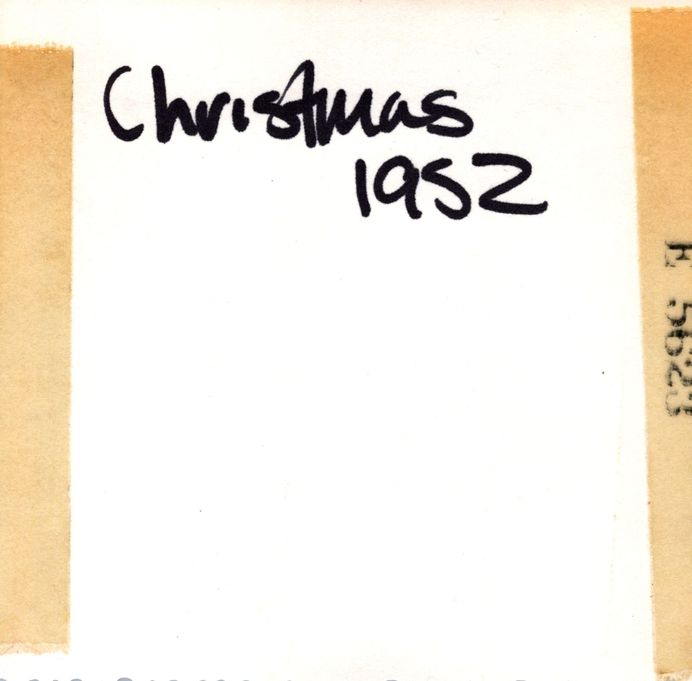 Christmas
1952
E 5623